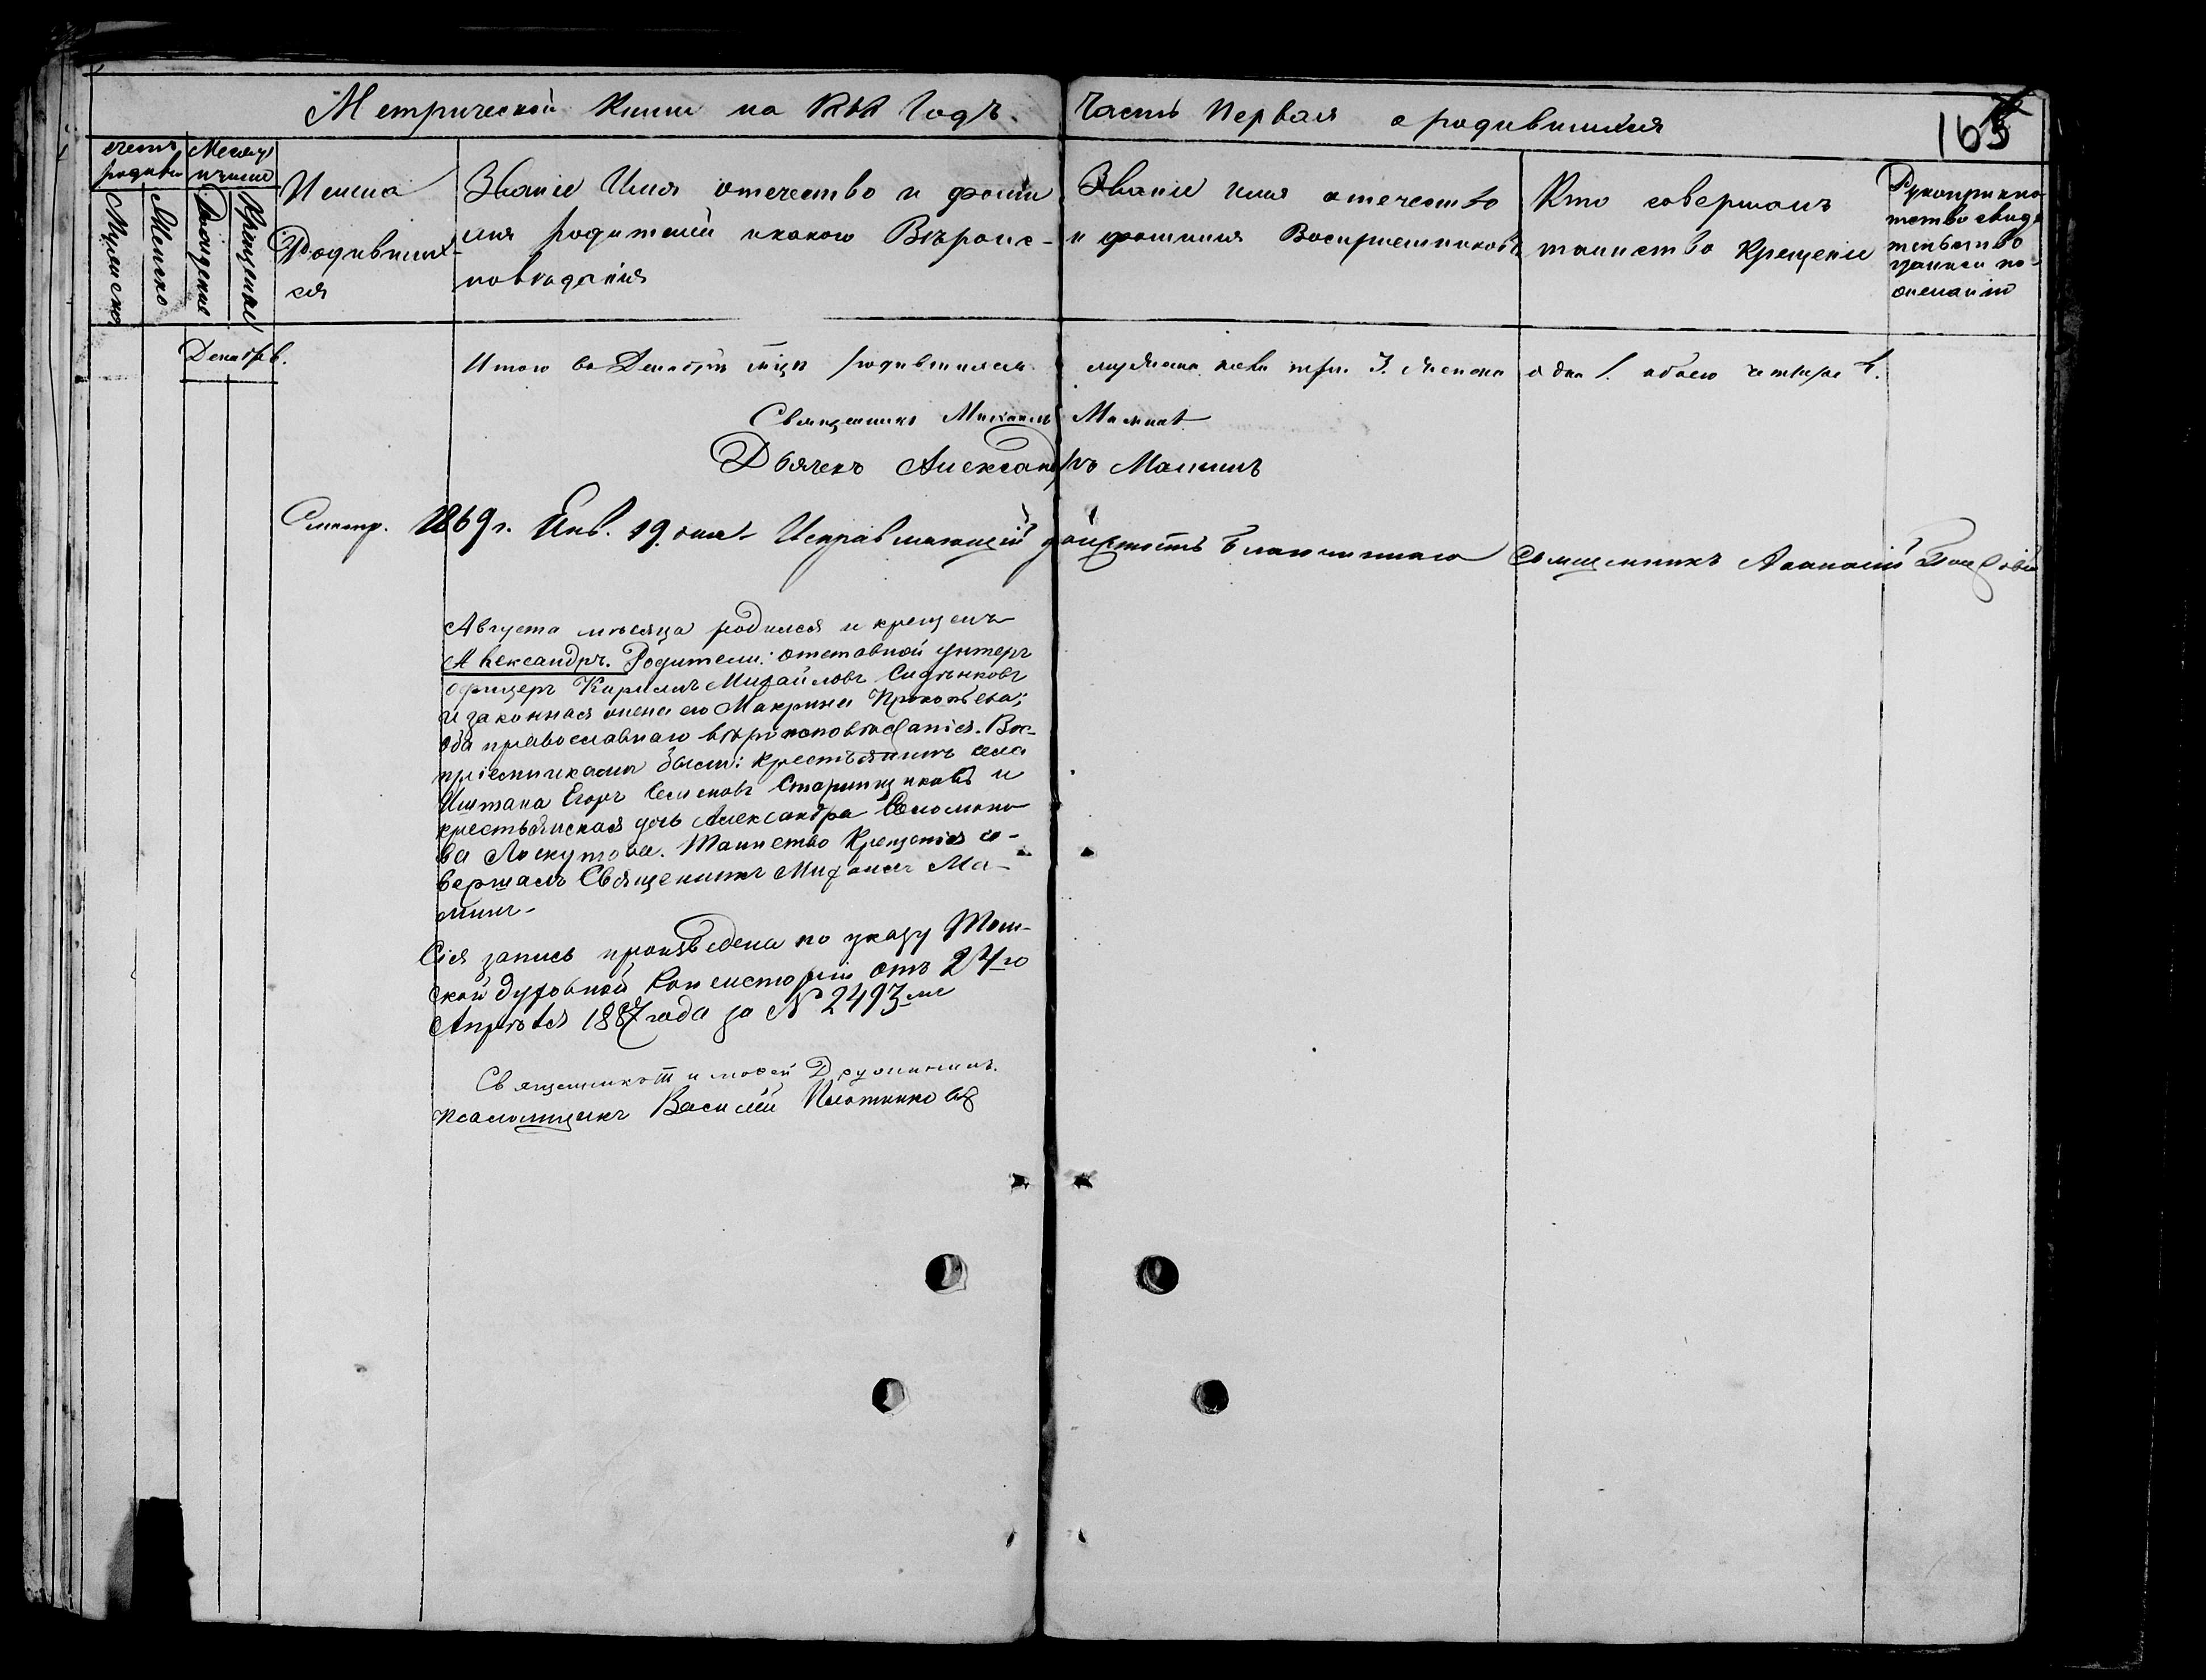 Метрической Книги на 1868 Годъ. Часть Первая о родившихся
165
счетъ родивш
Месяцъ и число
Мужеска
Женска
Рождение
Крещение
Имена
Родивших-
ся
Званіе Имя отечество и фами
лія родителей и какого Вѣроис-
поведанія
Званіе имя отечество
и фамилія Воспріемниковъ
Кто совершалъ
таинство Крещенія
Рукоприкла-
тство свиде
тельство
записи по
желанію
Декабрь.
Итого въ Декабрѣ мцѣ родившихся мужеска пола три 3. женска одна 1. обоего четыре 4.
Священникъ Михаилъ Маминъ
Дьячекъ Александръ Маминъ
Смотр. 1869 г. Янв. 19. дня Исправляющій должность благочиннаго Священникъ Афанасій
Августа мѣсяца родился и крещенъ
Александръ. Родители: отставной унтеръ
офицеръ Кирилъ Михайловъ Сидѣнковъ
и законная жена его Макрина Прокопьева;
оба православнаго вѣроисповѣданія. Вос-
пріемниками были: крестьянинъ села
Иштана Егоръ Семеновъ Старищиковъ и
крестьянская дочь Александра Соломоно-
ва Лоскутова. Таинство Крещенія со-
вершалъ Священникъ Михаилъ Ма-
минъ.
Сія запись произведена по указу Том-
ской духовной Консисторіи отъ 24го
Апрѣля 1887 года за № 2493-ме
Священникъ Тимофей Дружининъ.
Псаломщикъ Василій Плотниковъ